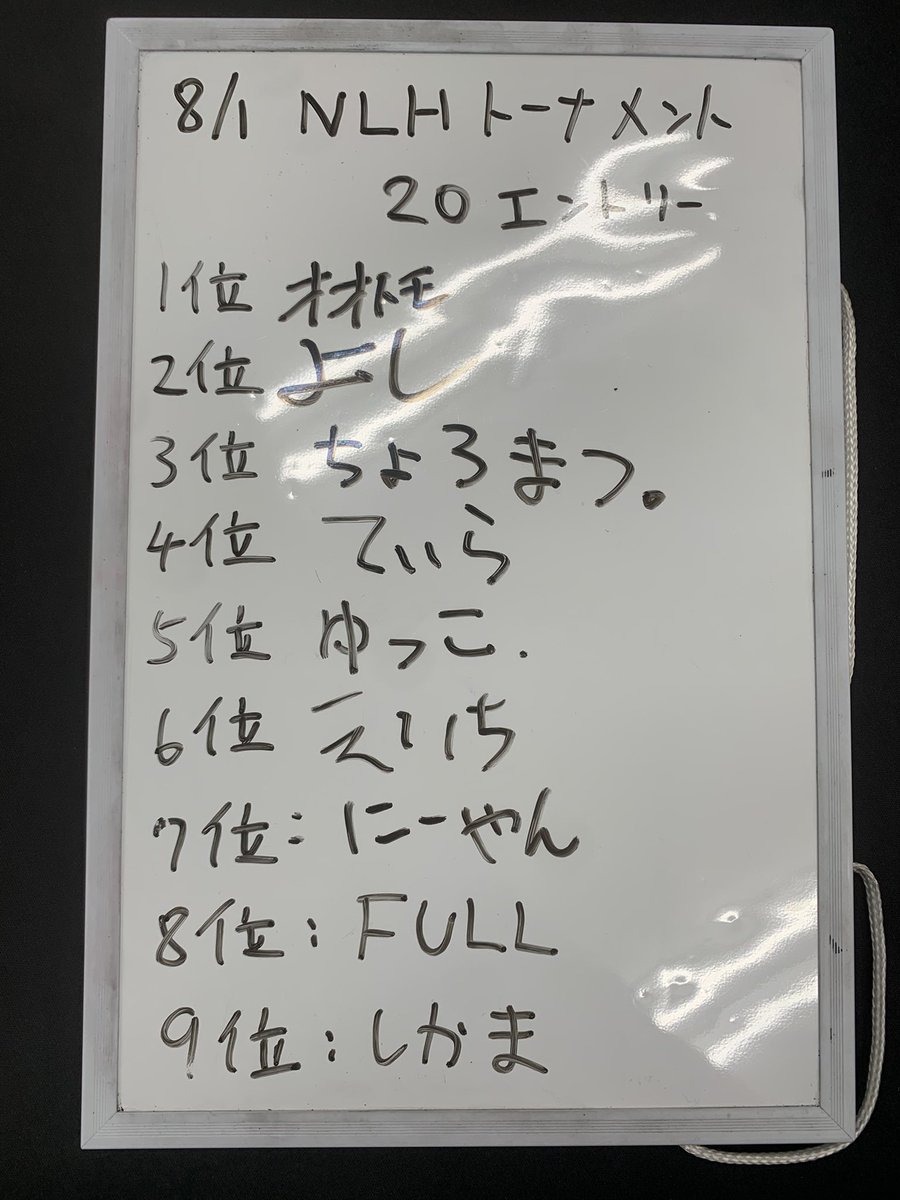 8/1 NLHトーナメント
20エントリー
1位 オオトモ
2位 よし
3位 ちょろまつ。
4位 てぃら
5位 ゆっこ.
6位 えいち
7位:にーやん
8位:FULL
9位:しかま